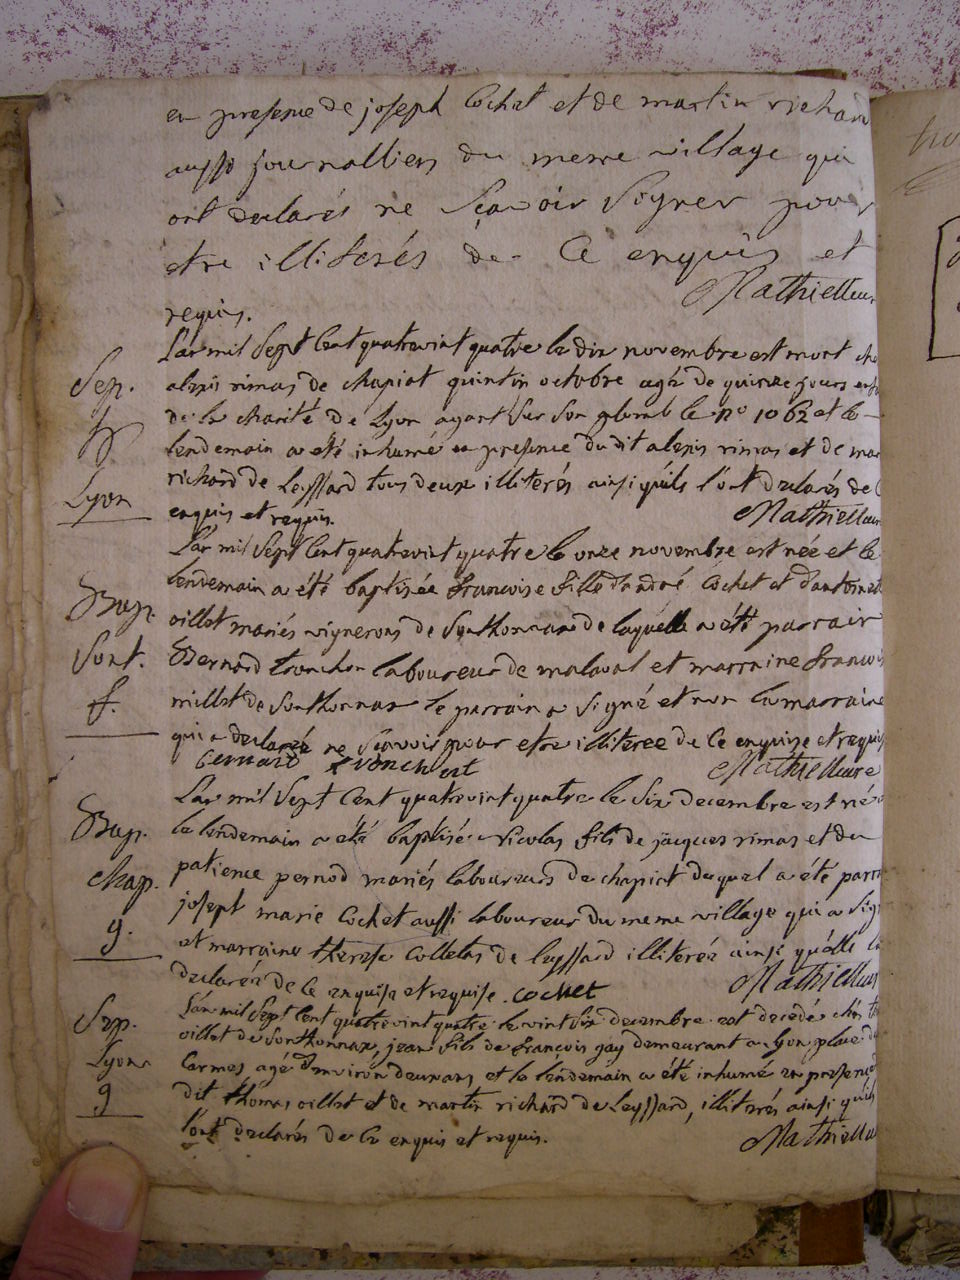 en presence de joseph Cochet et de martin richard
aussi journalliers du meme village qui
ont declarés ne sçavoir signer pour
etre illiterés de ce enquis et
Mathielleure
requis.
L'an mil sept cent quatrevint quatre le dix novembre est mort ché
Sep.
alexis rimas de chapiat quintin octobre agé de quinze jours enfant
de la charité de Lyon ayant sur son plomb le n° 1062 et le
lendemain a été inhumé en presence du dit alexis rimas et de
Lyon
richard de Leyssard tous deux illiterés ainsi qu'ils l'ont declarés de
enquis et requis. Mathielleure
L'an mil sept cent quatrevint quatre le onze novembre est née et le
lendemain a été baptisée francoise fille d'andré Cochet et d'antoinette
Bap.
oillet mariés vignerons de Sonthonnax de laquelle a été parrain
Sont.
Bernard tronchon laboureur de malaval et marraine francoise
f.
millet de Sonthonnax le parrain a signé et non la marraine
qui a declarée ne sçavoir pour etre illiteree de ce enquise et requise
bernard Mathielleure
L'an mil sept cent quatrevint quatre le six decembre est né
Bap.
le lendemain a été baptisé nicolas fils de jacques rimas et de
chap.
patience pernod mariés laboureurs de chapiat duquel a été
g.
joseph marie Cochet aussi laboureur du meme village qui a
et marraine therese Colletas de leyssard illiterée ainsi qu'elle
declarée de ce enquise et requise. cochet Mathielleure
Sep.
L'an mil sept cent quatrevint quatre le vint six decembre est decedé chés
Lyon
oillet de Sonthonnax, jean fils de francois gay demeurant a Lyon place des
g
Carmes agé d'environ deux ans et le lendemain a été inhumé en presence
dit thomas oillet et de martin richard de Leyssard, illiterés ainsi qu'ils
l'ont declarés de ce enquis et requis. Mathielleure